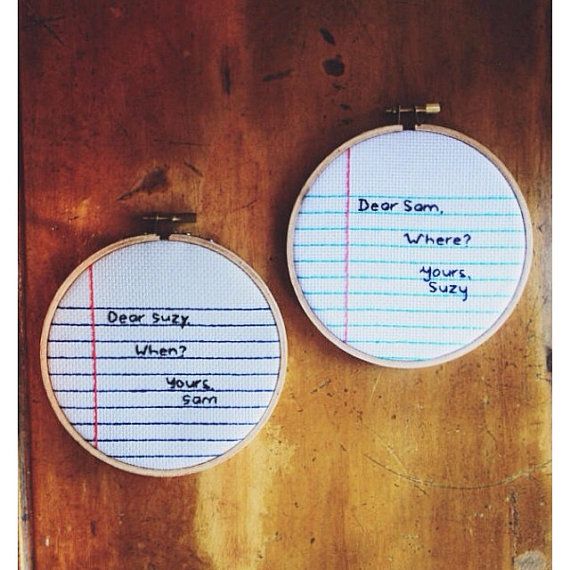 Dear Suzy,
When?
Yours,
Sam
Dear Sam,
Where?
Yours,
Suzy